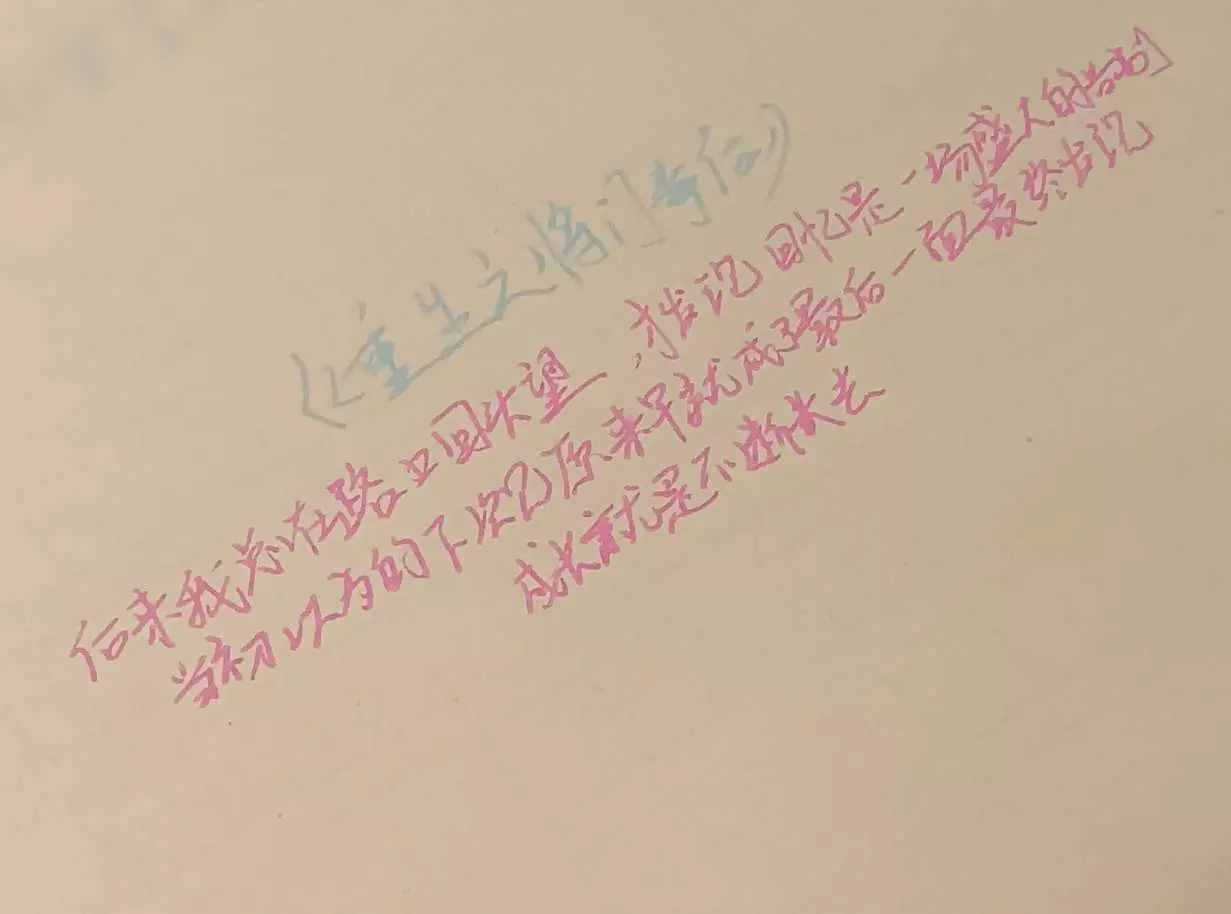 《重生之将门毒后》
后来我总在路口回头望，才发现回忆是一场盛大的告别
当初以为的下次见原来早就成了最后一面最终发现
成长就是不断失去